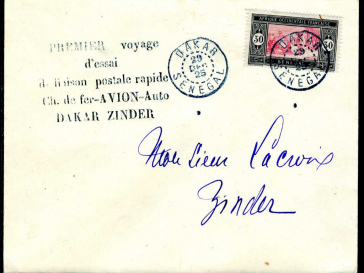 PREMIER voyage
d'essai
de liaison postale rapide
Ch. de fer-AVION-Auto
DAKAR ZINDER
DAKAR
29
DEC
25
SENEGAL
AFRIQUE OCCIDENTALE FRANÇAISE
50 50
SENEGAL
DAKAR
25
SENEGAL
Lacroix
Zinder